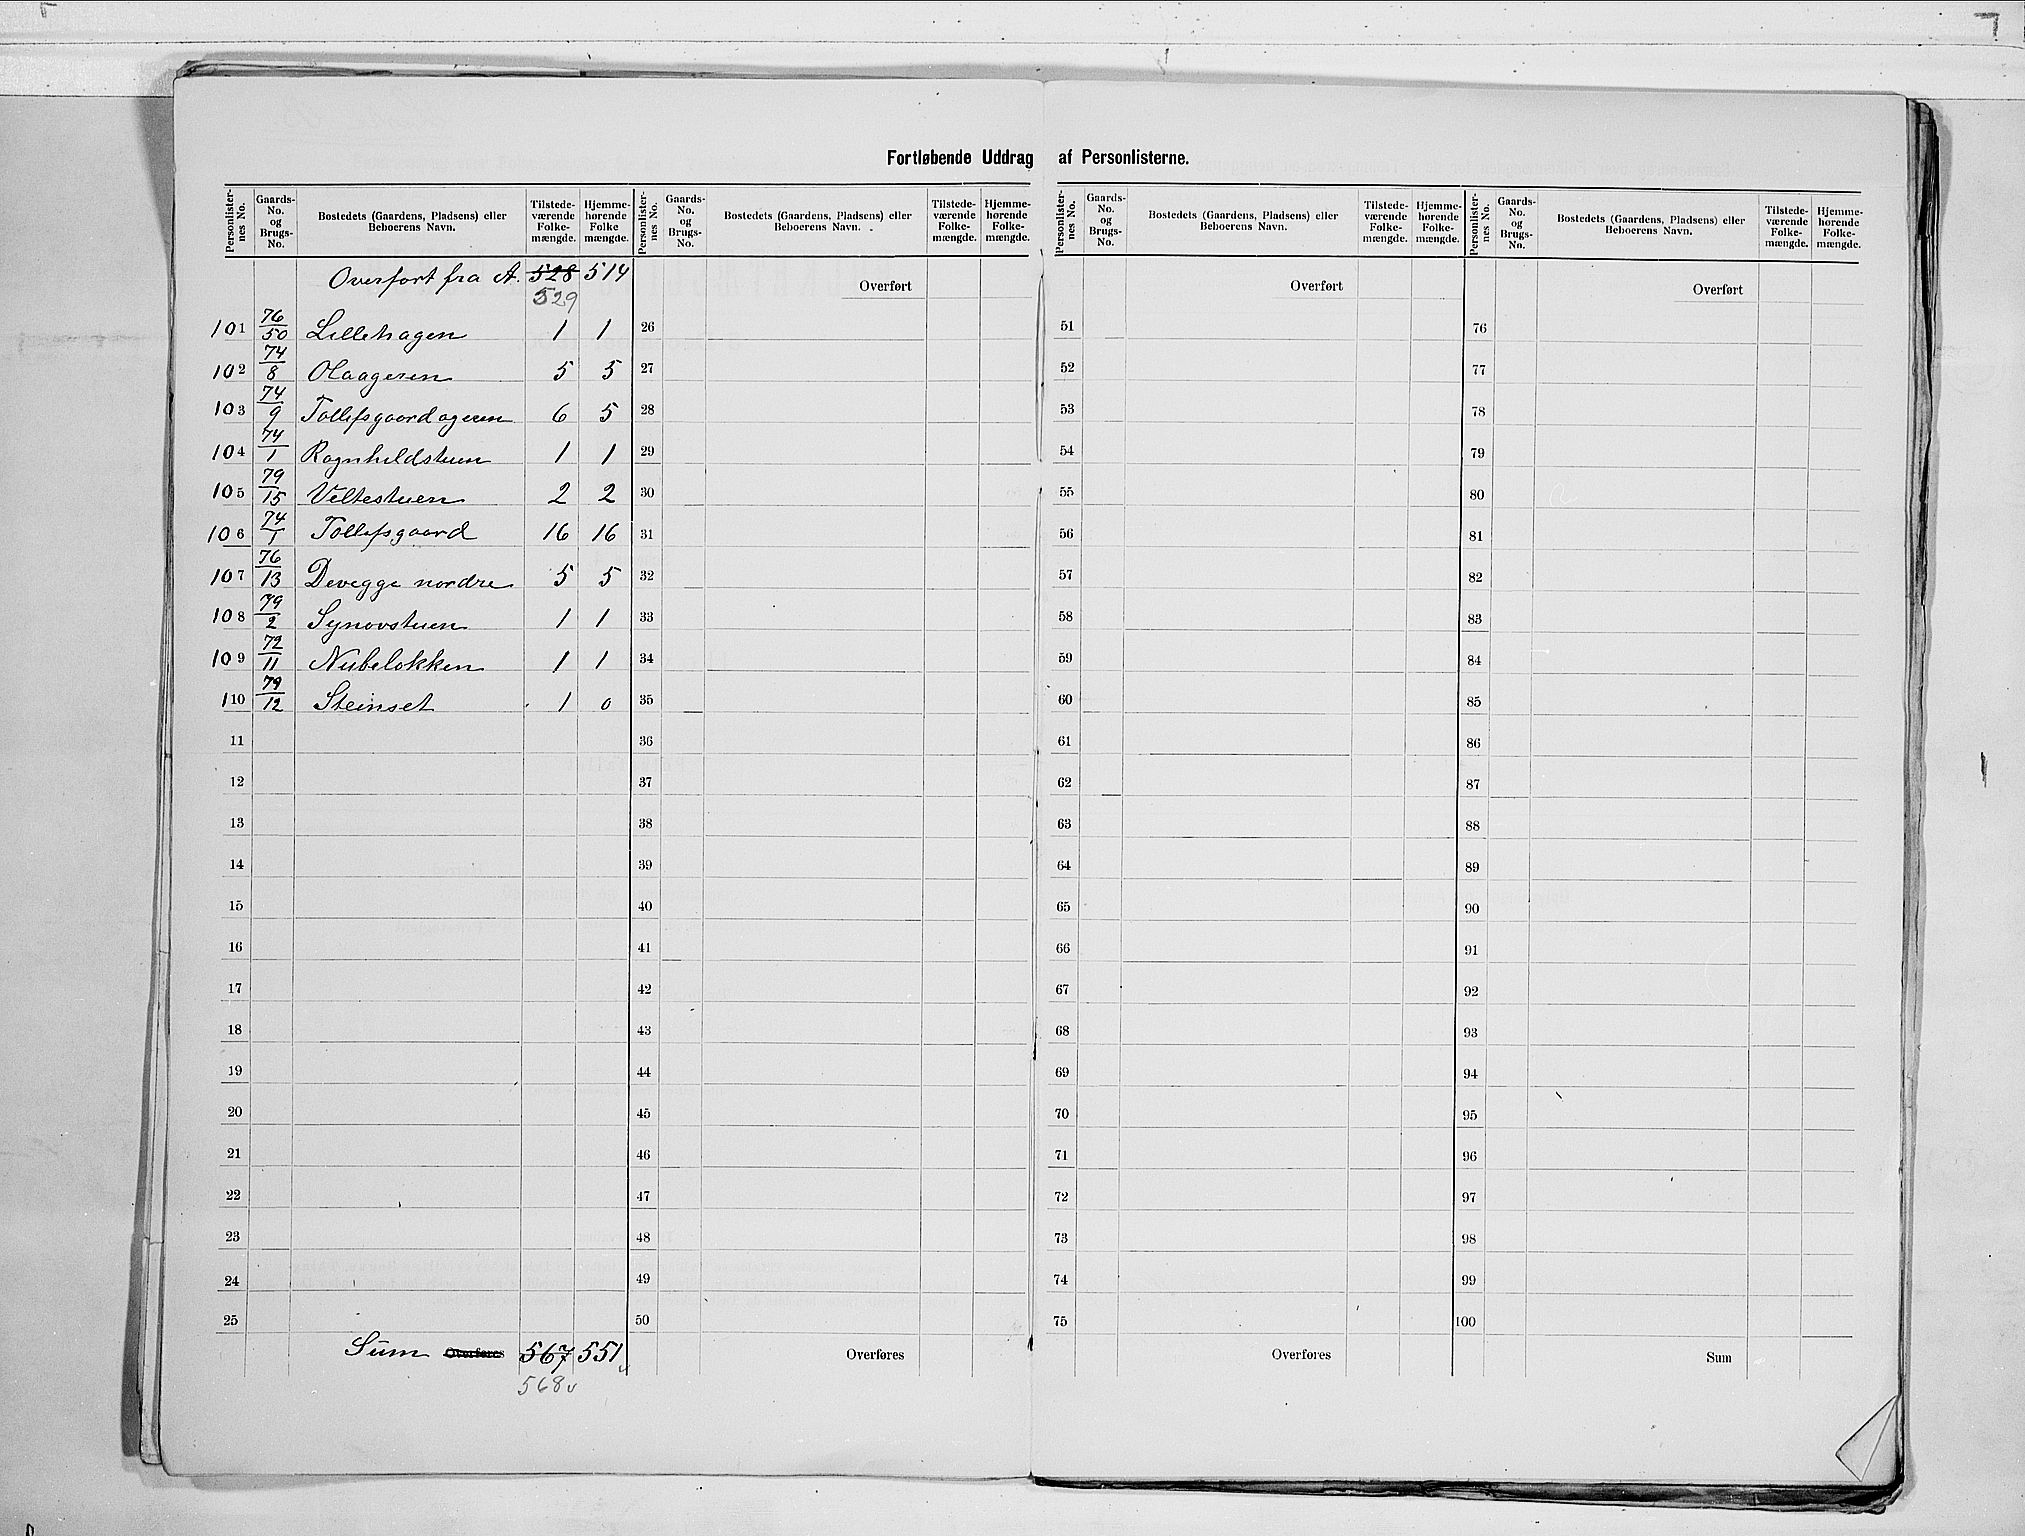 Fortløbende Uddrag af Personlisterne.
Personlister-nes No. | Gaards-No. og Brugs-No. | Bostedets (Gaardens, Pladsens) eller Beboerens Navn. | Tilstede-værende Folke-mængde. | Hjemme-hørende Folke mængde.
Overført fra A. 528 514
529
101 76/50 Lillehagen 1 1
102 74/8 Olaageren 5 5
103 74/9 Tollefsgaardageren 6 5
104 74/1 Ragnhildstuen 1 1
105 79/15 Veltestuen 2 2
106 74/1 Tollefsgaard 16 16
107 76/13 Devegge nordre 5 5
108 79/2 Synovstuen 1 1
109 72/11 Nubeløkken 1 1
110 79/12 Steinset 1 0
11
12
13
14
15
16
17
18
19
20
21
22
23
24
25
Sum Overføres 567 551
568
Personlister-nes No. | Gaards-No. og Brugs-No. | Bostedets (Gaardens, Pladsens) eller Beboerens Navn. | Tilstede-værende Folke-mængde. | Hjemme-hørende Folke-mængde.
Overført
26
27
28
29
30
31
32
33
34
35
36
37
38
39
40
41
42
43
44
45
46
47
48
49
50
Overføres
Personlister-nes No. | Gaards-No. og Brugs-No. | Bostedets (Gaardens, Pladsens) eller Beboerens Navn. | Tilstede-værende Folke-mængde. | Hjemme-hørende Folke-mængde.
Overført
51
52
53
54
55
56
57
58
59
60
61
62
63
64
65
66
67
68
69
70
71
72
73
74
75
Overføres
Personlister-nes No. | Gaards-No. og Brugs-No. | Bostedets (Gaardens, Pladsens) eller Beboerens Navn. | Tilstede-værende Folke-mængde. | Hjemme-hørende Folke-mængde.
Overført
76
77
78
79
80
81
82
83
84
85
86
87
88
89
90
91
92
93
94
95
96
97
98
99
100
Sum